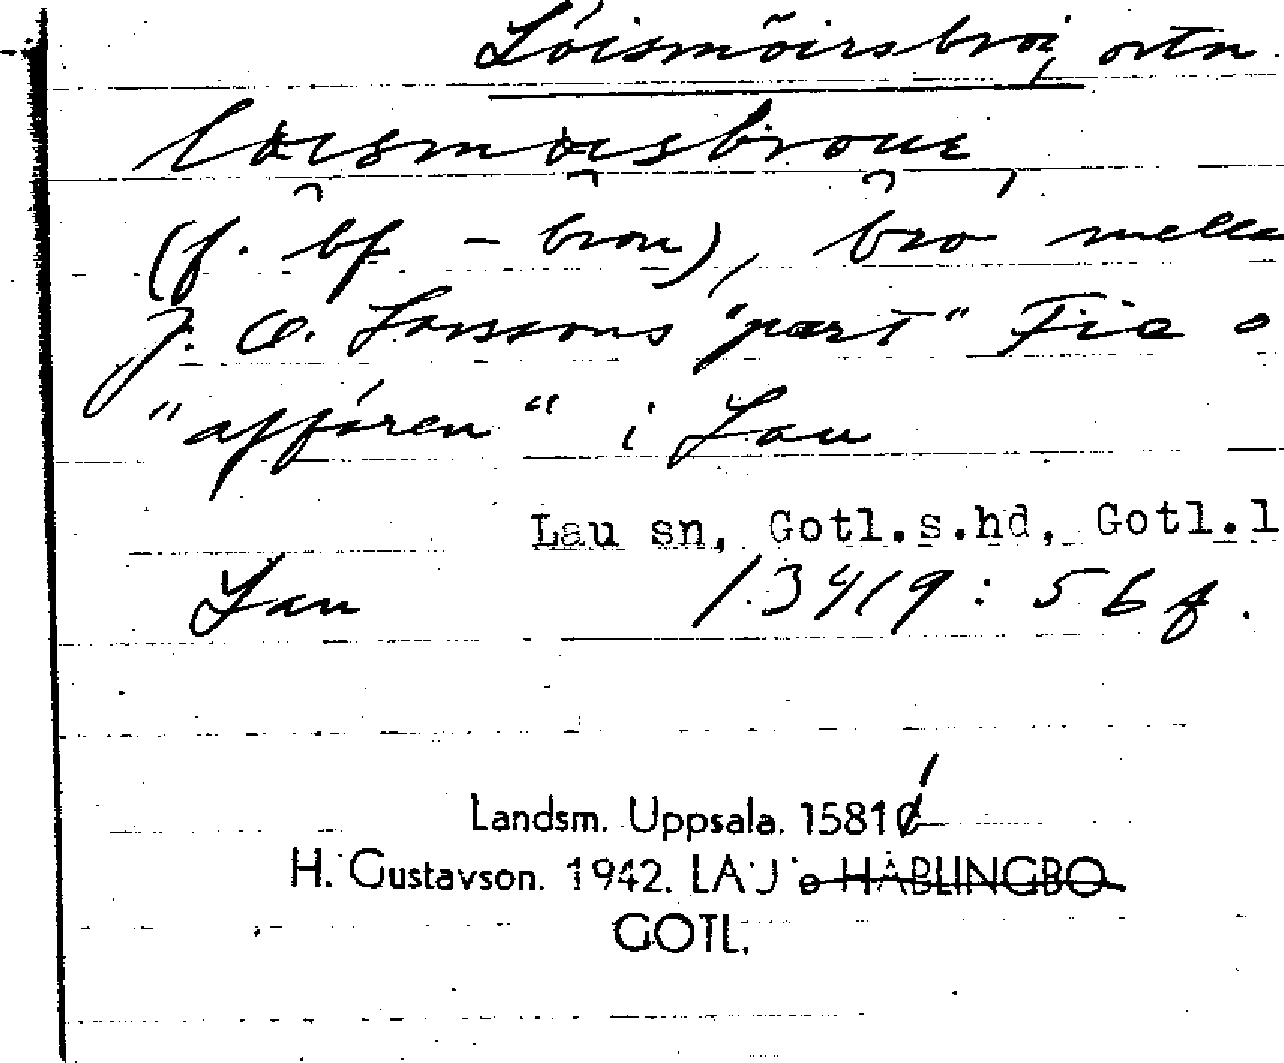 Lóismõirsbroi, ortn.
loismoisbroue
(f. bf - bron), bro mella
J. O. Larssons "part" Fie o
"affären" i Lau
Lau sn, Gotl.s.hd, Gotl.l
Lau 13419:56 f.
Landsm. Uppsala. 1581
H. Gustavson. 1942. LAU o HABLINGBO
GOTL.